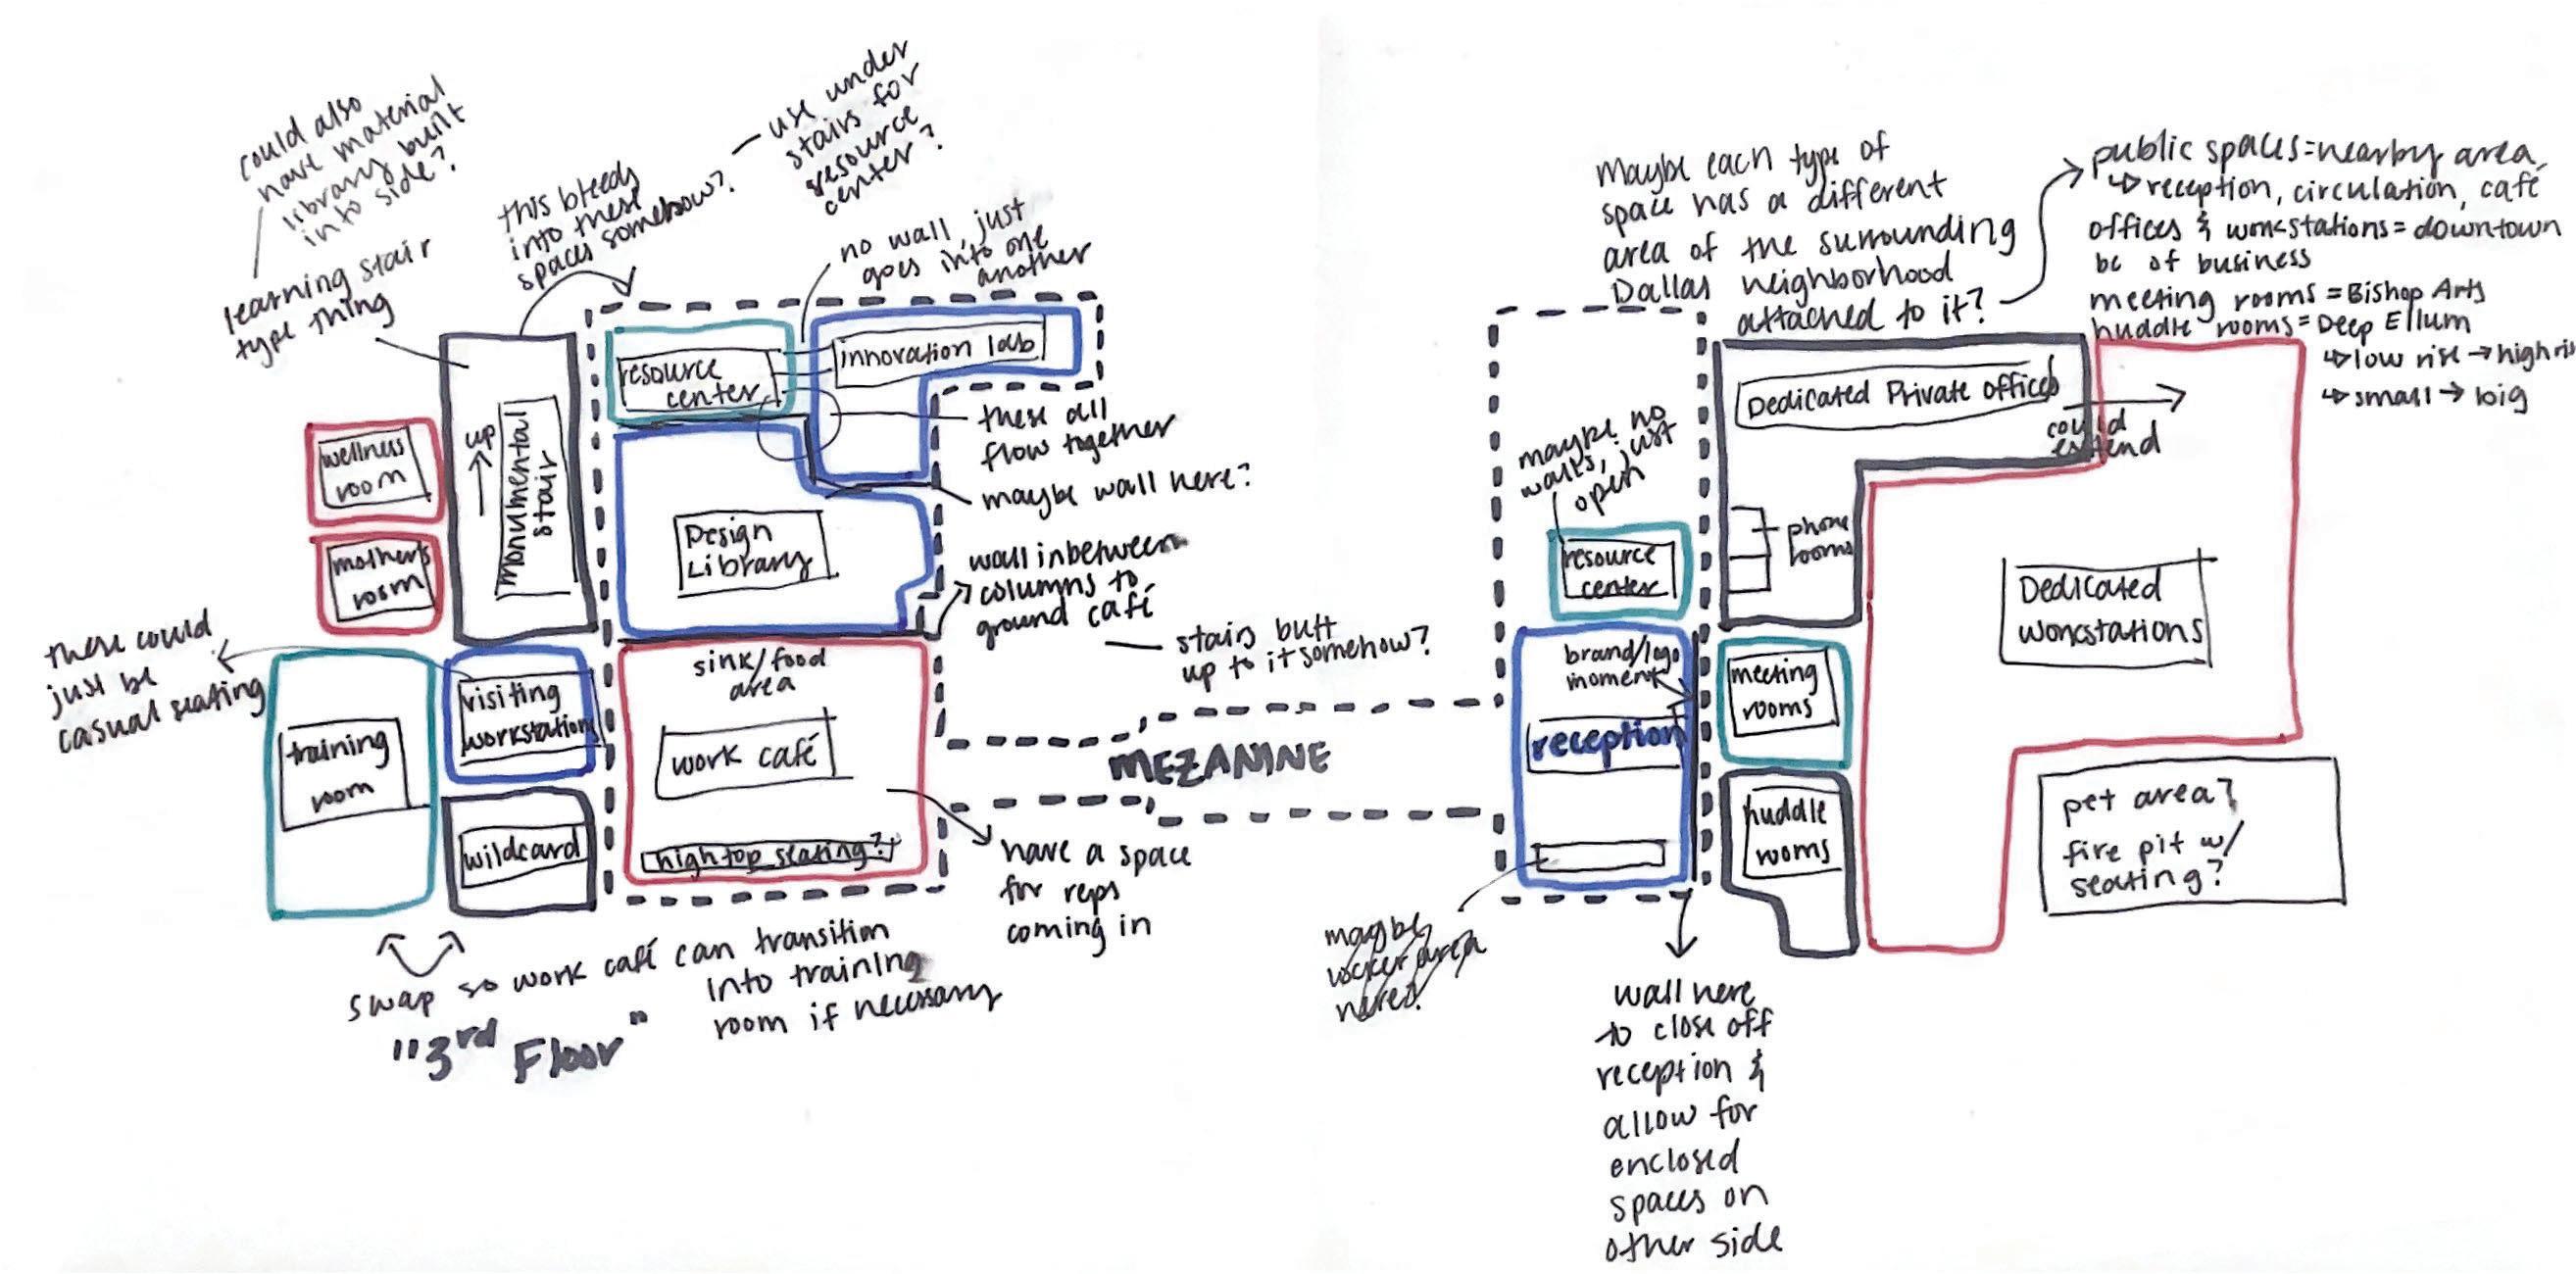 could also
have material
library built
into side?
learning stair
type thing
this bleeds
into these
spaces somehow?
use under
stairs for
resource
center?
no wall, just
goes into one
another
resource
center
innovation lab
these all
flow together
maybe wall here?
wellness
room
mother's
room
up
monumental
stair
Design
Library
wall inbetween
columns to
ground café
stairs butt
up to it somehow?
these could
just be
casual seating
training
room
visiting
workstations
wildcard
sink/food
area
work café
high top seating?
have a space
for reps
coming in
swap so work café can transition
into training
room if necessary
"3rd Floor"
MEZANINE
Maybe each type of
space has a different
area of the surrounding
Dallas neighborhood
attached to it?
public spaces = nearby area,
↳ reception, circulation, café
offices & workstations = downtown
bc of business
meeting rooms = Bishop Arts
huddle rooms = Deep Ellum
↳ low rise → high ris
↳ small → big
Dedicated Private offices
could
extend
maybe no
walls, just
open
resource
center
phone
rooms
Dedicated
workstations
brand/logo
moment
reception
meeting
rooms
huddle
rooms
pet area?
fire pit w/
seating?
maybe
locker area
here?
wall here
to close off
reception &
allow for
enclosed
spaces on
other side